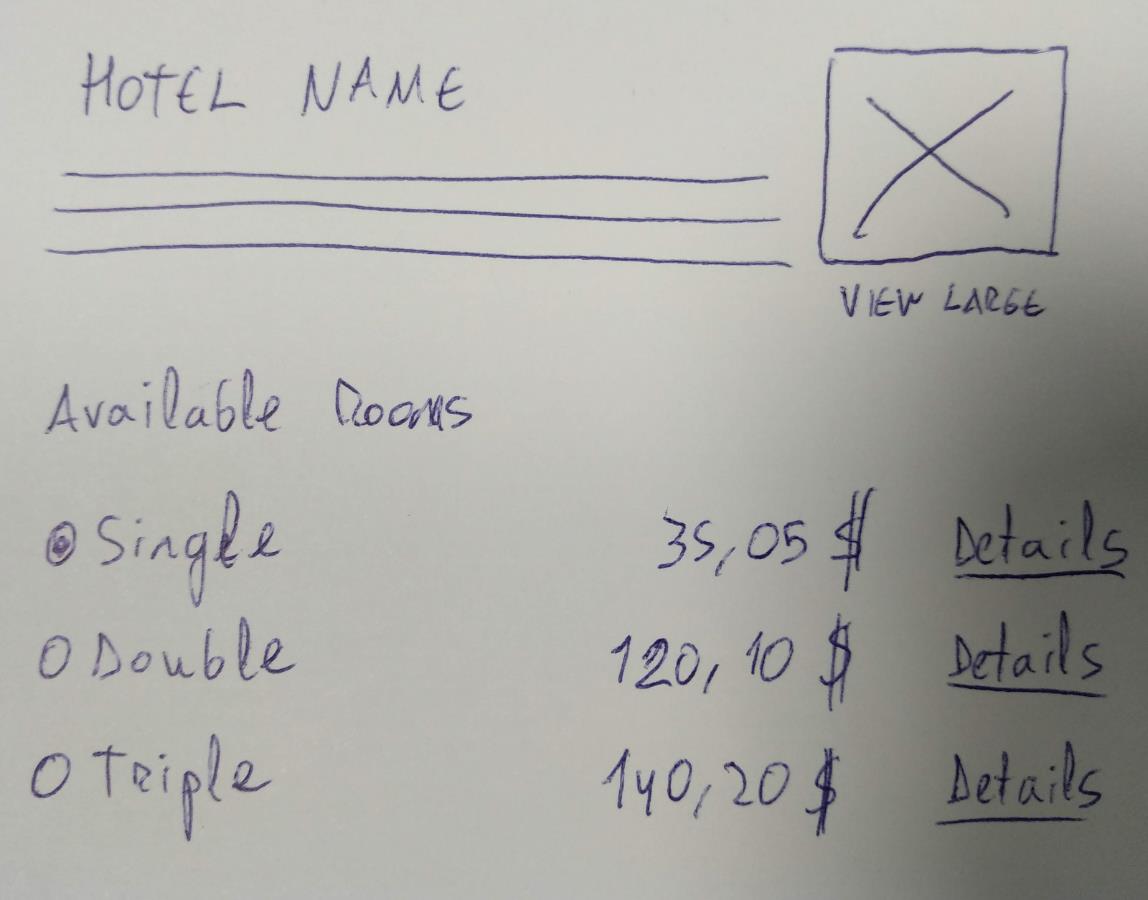 HOTEL NAME
VIEW LARGE
Available Rooms
Single 35,05 $ Details
Double 120,10 $ Details
Triple 140,20 $ Details